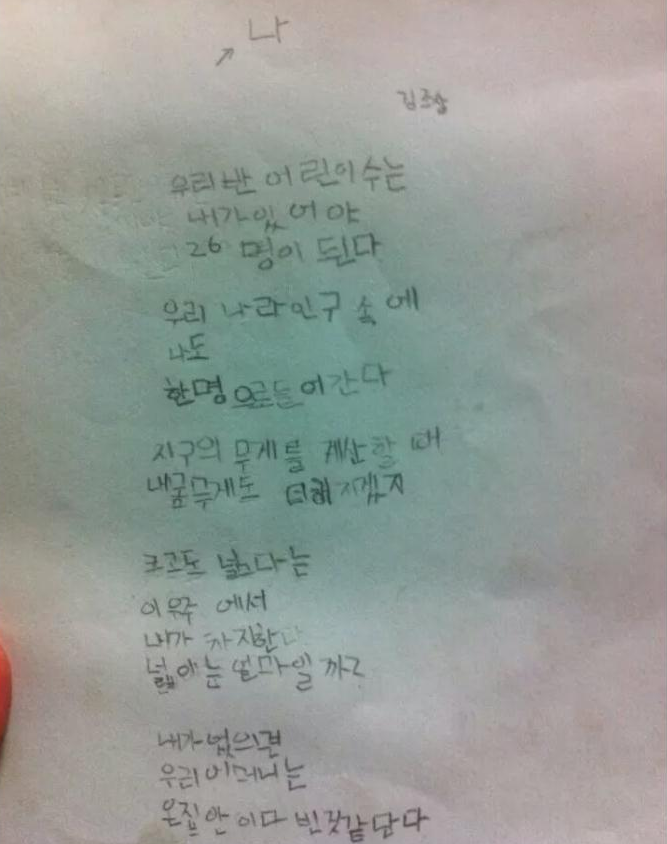 나
우리 반 어린이 수는
내가 있어야
26 명이 된다
우리 나라 인구 속에
나도
한명으로 들어간다
지구의 무게를 계산할 때
내 몸무게도 더해지겠지
크고도 넓다는
이 우주에서
내가 차지한
넓이는 얼마일까?
내가 없으면
우리 어머니는
온 집안이 다 빈것 같단다